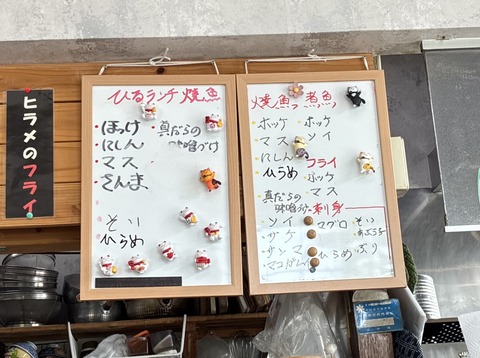 ヒラメのフライ
ひるランチ 焼魚
・ほっけ
・にしん
・マス
・さんま
・真だらの
味噌づけ
そい
ひらめ
焼魚 煮魚
ホッケ
マス
にしん
ひらめ
真だらの
味噌づけ
ソイ
サケ
サンマ
マコガレイ
ホッケ
ソイ
フライ
ホッケ
マス
刺身
マグロ
ひらめ
そい
あぶらこ
ぶり